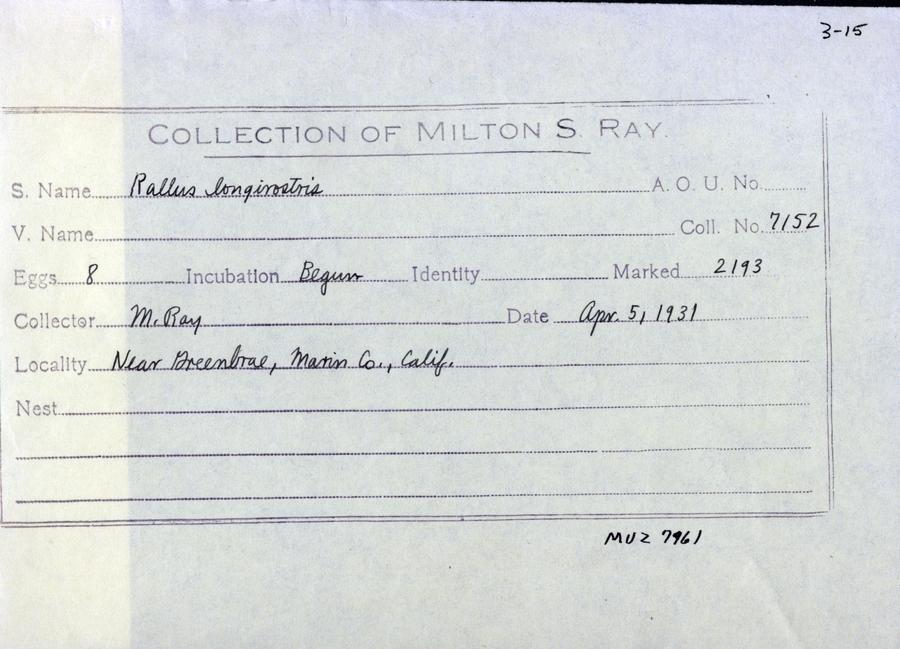 3-15
COLLECTION OF MILTON S. RAY.
S. Name Rallus longirostris A. O. U. No.
V. Name Coll. No. 7152
Eggs 8 Incubation Begun Identity Marked 2193
Collector M. Ray Date Apr. 5, 1931
Locality Near Greenbrae, Marin Co., Calif.
Nest
MVZ 7961